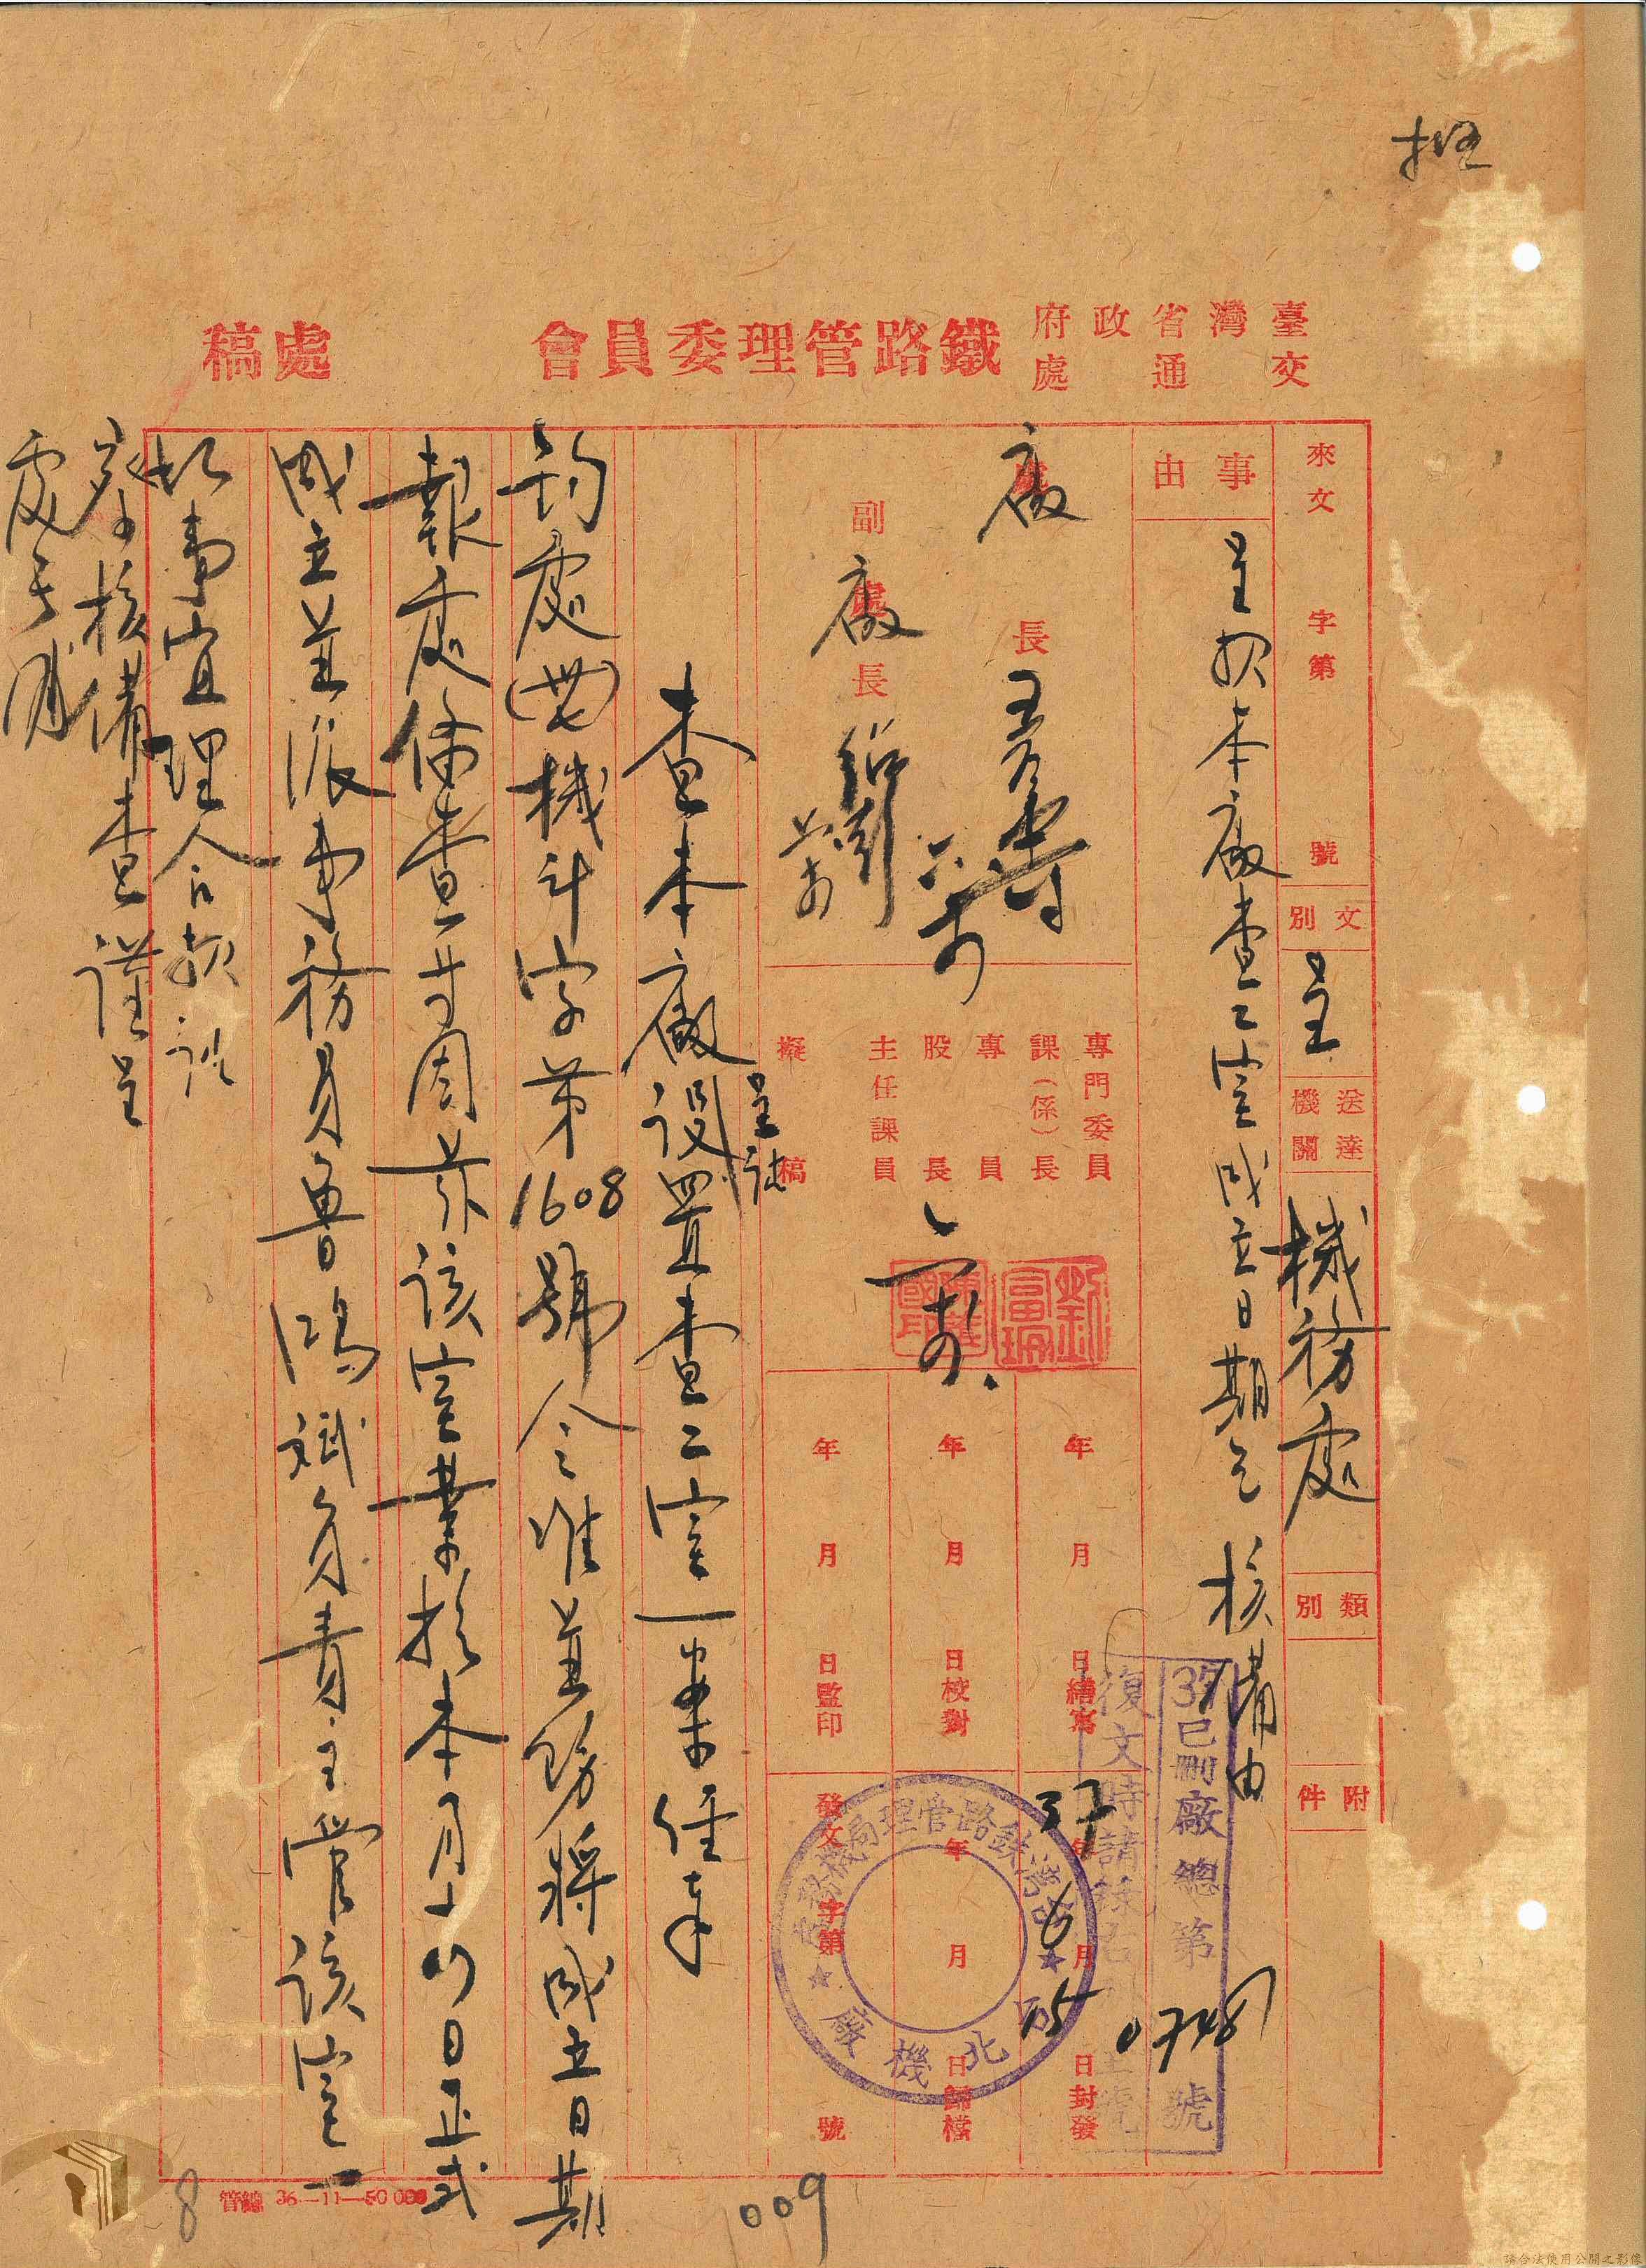 臺灣省政府
交通處
鐵路管理委員會
處稿
來文 字第 號
文別 呈
送達機關 機務處
類別
附件
事由
呈報本廠查工室成立日期乞 核備由
廠長
副廠長
專門委員
課(係)長
專員
股長
主任課員
擬稿
劉
年 月 日繕寫
年 月 日校對
年 月 日監印
37年6月15日封發
年 月 日歸檔
發文 字第 號
37已刪廠總第 號
復文時請
台北機廠
查本廠設置查工室一案經奉
呈
鈞處(卅七)機計字第1608號令准並飭將成立日期
報處備查等因茲該室業於本月 日正式
成立並派事務員魯鴻斌負責主管該室一
切事宜理合報請
鑒核備查謹呈
處長
管總 36—11—50 000
8
009
請合法使用公開之影像